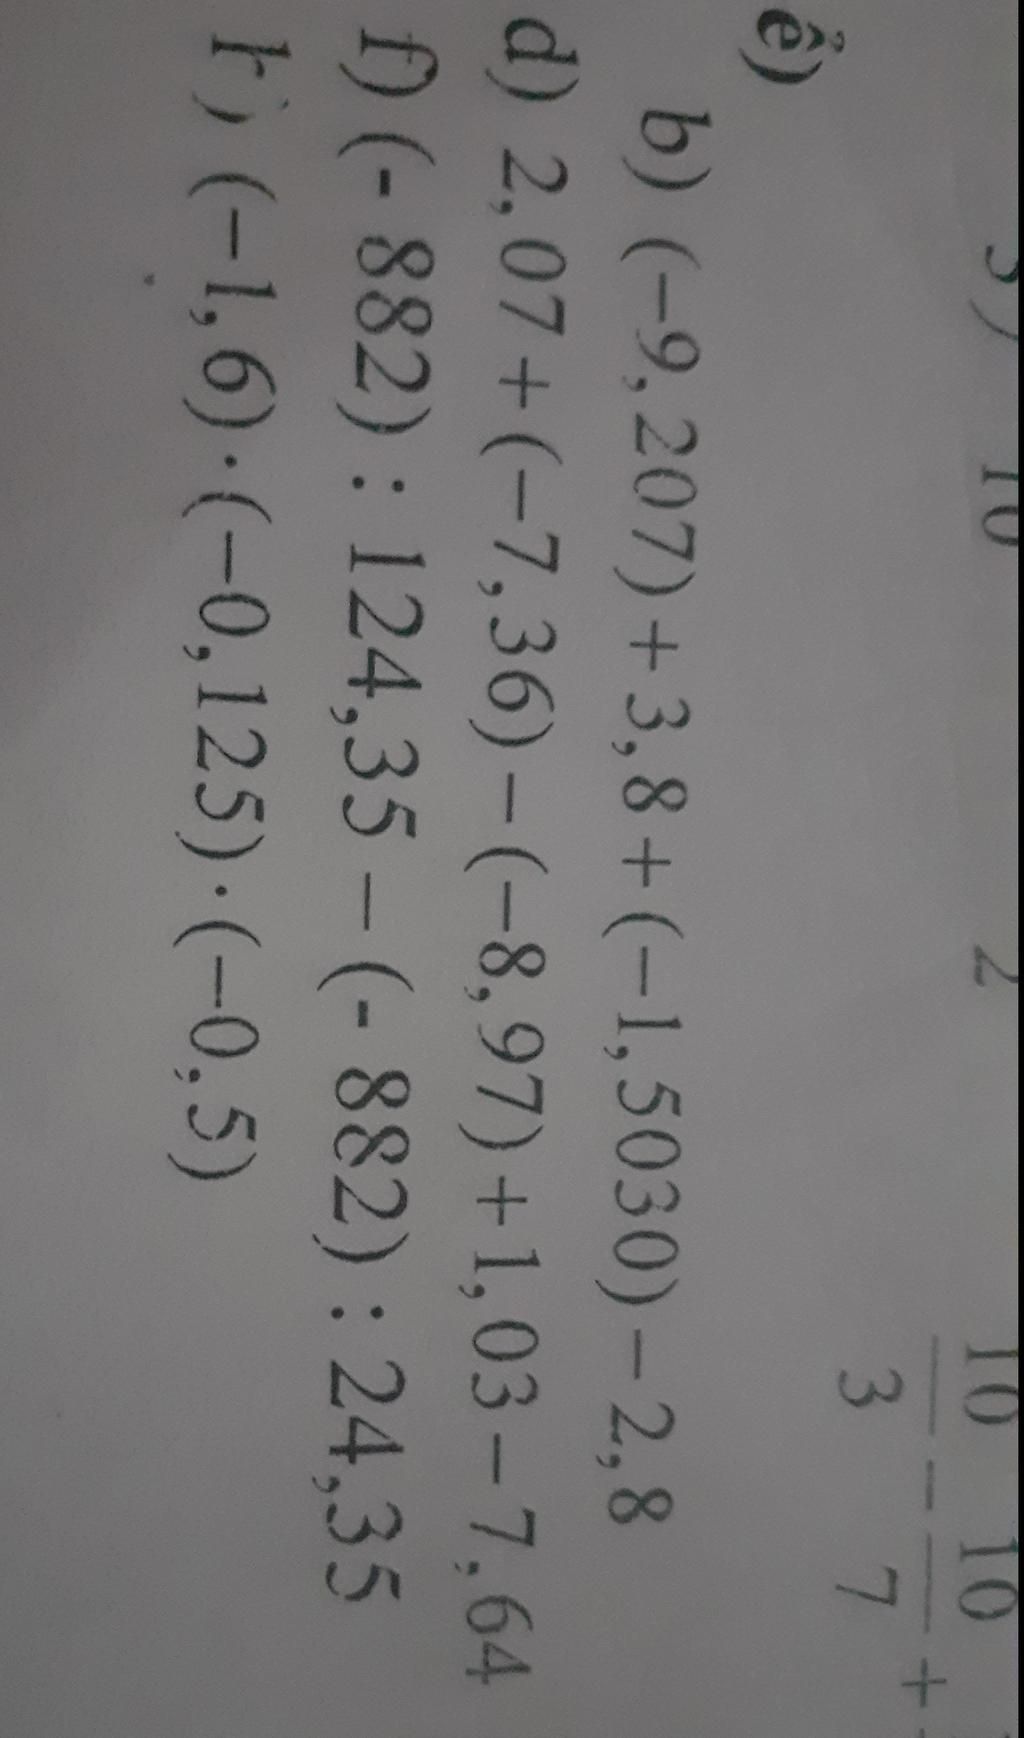 10 2 10 10
3 – 7 +
ể)
b) (–9,207) + 3,8 + (–1,5030) – 2,8
d) 2,07 + (–7,36) – (–8,97) + 1,03 – 7,64
f) (- 882) : 124,35 – (- 882) : 24,35
h) (–1,6)·(–0,125)·(–0,5)